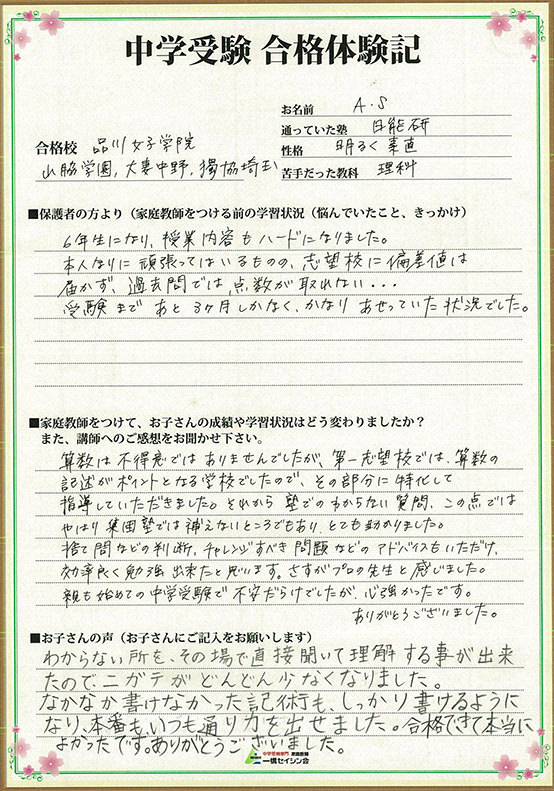 中学受験 合格体験記
お名前 A.S
通っていた塾 日能研
合格校 品川女子学院
性格 明るく素直
山脇学園, 大妻中野, 獨協埼玉
苦手だった教科 理科
■保護者の方より（家庭教師をつける前の学習状況（悩んでいたこと、きっかけ）
6年生になり、授業内容もハードになりました。
本人なりに頑張ってはいるものの、志望校に偏差値は
届かず、過去問では点数が取れない・・・
受験まであと3ヶ月しかなく、かなりあせっていた状況でした。
■家庭教師をつけて、お子さんの成績や学習状況はどう変わりましたか？
また、講師へのご感想をお聞かせ下さい。
算数は不得意ではありませんでしたが、第一志望校では、算数の
記述がポイントとなる学校でしたので、その部分に特化して
指導していただきました。それから塾でのわからない質問、この点では
やはり集団塾では補えないところでもあり、とても助かりました。
捨て問などの判断、チャレンジすべき問題などのアドバイスもいただけ、
効率良く勉強出来たと思います。さすがプロの先生と感じました。
親も始めての中学受験で不安だらけでしたが、心強かったです。
ありがとうございました。
■お子さんの声（お子さんにご記入をお願いします）
わからない所を、その場で直接聞いて理解する事が出来
たのでニガテがどんどん少なくなりました。
なかなか書けなかった記術も、しっかり書けるように
なり、本番も、いつも通り力を出せました。合格できて本当に
よかったです。ありがとうございました。
中学受験専門 家庭教師
一橋セイシン会